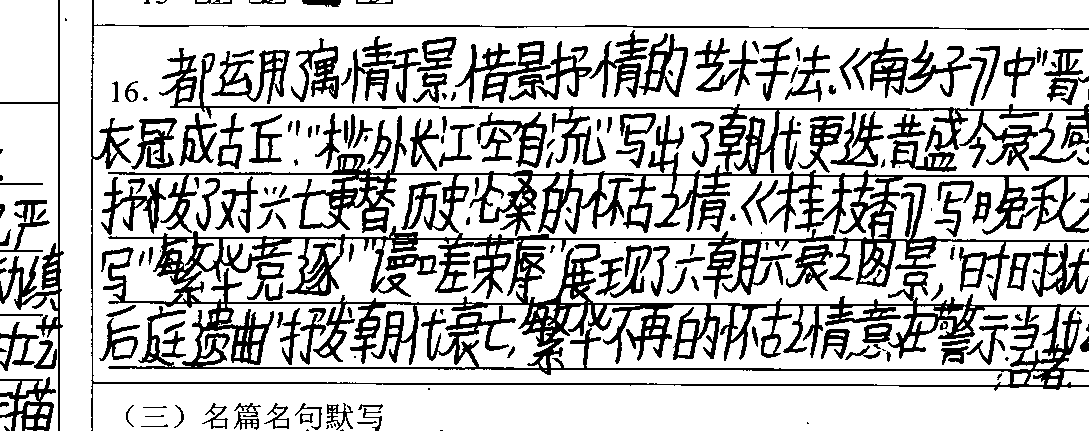 16. 都运用了寓情于景,借景抒情的艺术手法.《南乡子》中"晋
衣冠成古丘""槛外长江空自流"写出了朝代更迭,昔盛今衰之感
抒发了对兴亡更替,历史沧桑的怀古之情.《桂枝香》写晚秋之
写"繁华竞逐""谩嗟荣辱"展现了六朝兴衰之图景,"时时犹
后庭遗曲"抒发朝代衰亡,繁华不再的怀古之情,意在警示当代
治者.
(三)名篇名句默写
严
填
艺
描